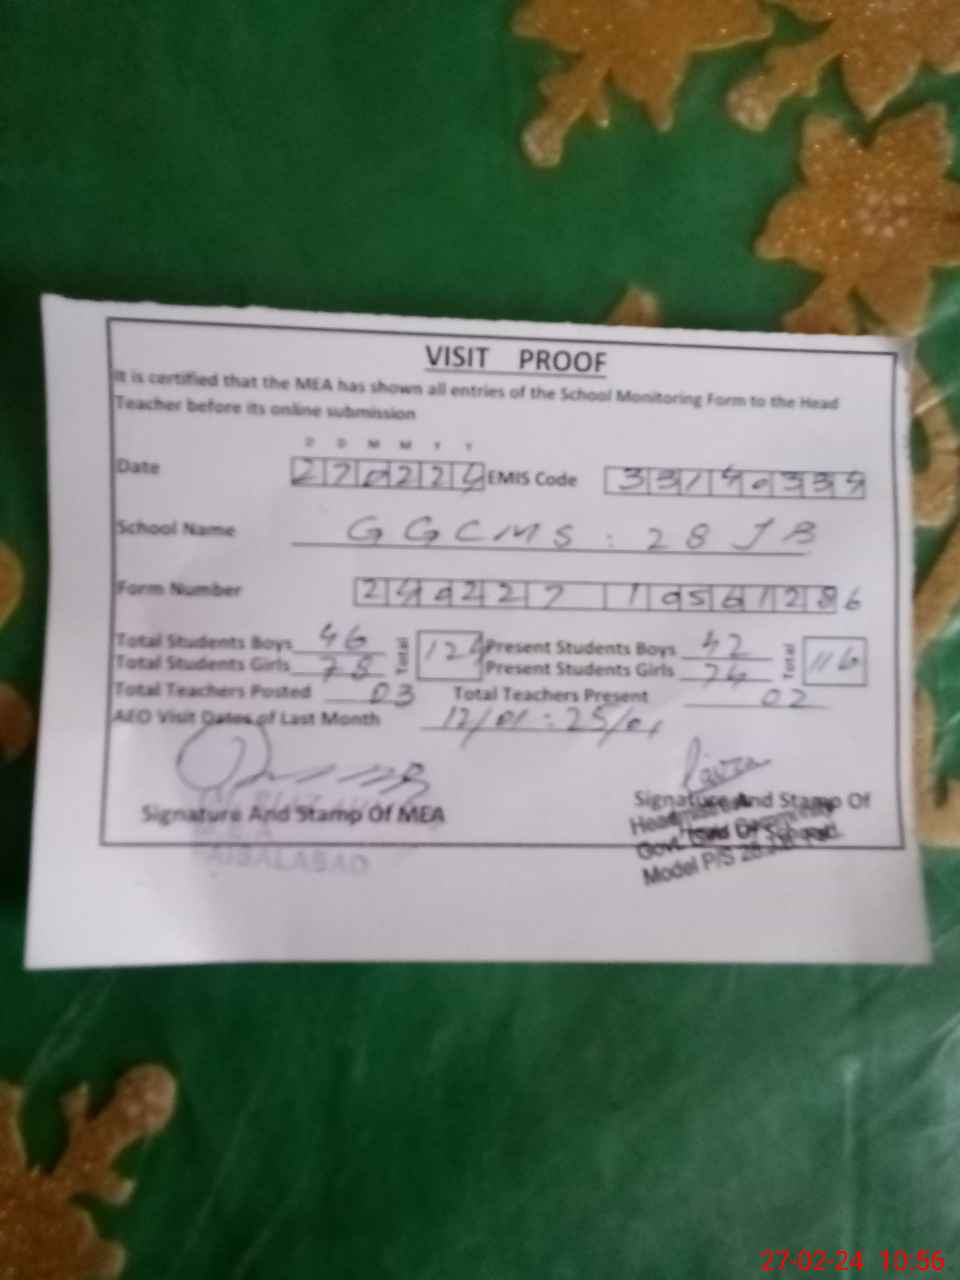 VISIT PROOF
It is certified that the MEA has shown all entries of the School Monitoring Form to the Head
Teacher before its online submission
D D M M Y Y
Date 270224 EMIS Code 33140334
School Name GGCMS : 28 JB
Form Number 240227 10561286
Total Students Boys 46 Total 124 Present Students Boys 42 Total 116
Total Students Girls 78 Present Students Girls 74
Total Teachers Posted 03 Total Teachers Present 02
AEO Visit Dates of Last Month 12/01 : 25/01
Signature And Stamp Of MEA Signature And Stamp Of
FAISALABAD
Govt.
Model P/S 28
27-02-24 10:56